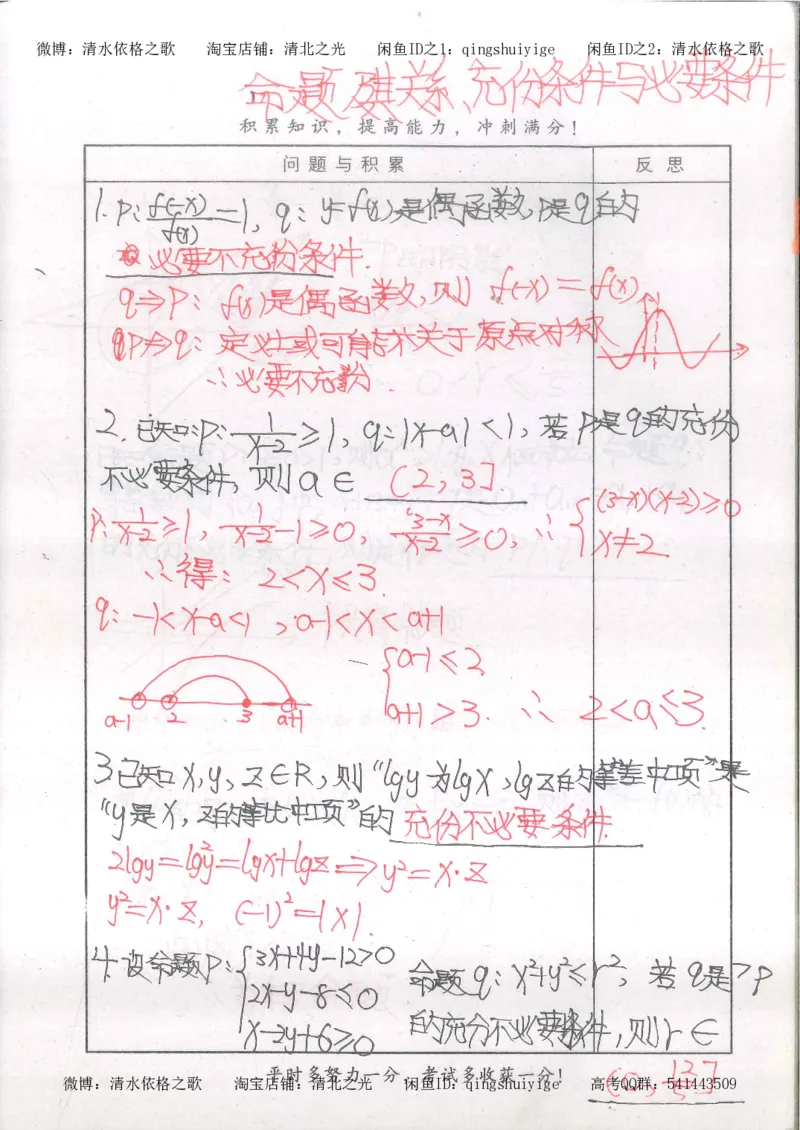 微博：清水依格之歌 淘宝店铺：清北之光 闲鱼ID之1：qingshuiyige 闲鱼ID之2：清水依格之歌
命题及其关系、充份条件与必要条件
积累知识，提高能力，冲刺满分！
问题与积累 反思
1. P: f(-x)/f(x)=1, q: y=f(x)是偶函数, p是q的
必要不充份条件.
q⇒P: f(x)是偶函数,则 f(-x)=f(x)
P⇏q: 定义域可能不关于原点对称
∴必要不充份.
2. 已知:P: 1/(x-2)≥1, q:|x-a|<1, 若P是q的充份
不必要条件,则a∈ (2,3].
P: 1/(x-2)≥1, 1/(x-2)-1≥0, (3-x)/(x-2)≥0, ∴ {(3-x)(x-2)≥0
x≠2
∴得: 2<x≤3.
q: -1<x-a<1, a-1<x<a+1
{a-1≤2
a+1>3. ∴ 2<a≤3.
a-1 2 3 a+1
3 已知x,y,z∈R,则“lgy为lgx,lgz的等差中项”是
“y是x,z的等比中项”的 充份不必要条件.
2lgy=lgy²=lgx+lgz⇒y²=x·z
y²=x·z, (-1)²=1×1.
4. 设命题P: {3x+4y-12>0
2x-y-8≤0 命题q: x²+y²≤r², 若q是¬p
x-2y+6≥0 的充分不必要条件,则r∈
平时多努力一分，考试多收获一分！
(0, 12/5]
微博：清水依格之歌 淘宝店铺：清北之光 闲鱼ID之1：qingshuiyige 高考QQ群：541443509